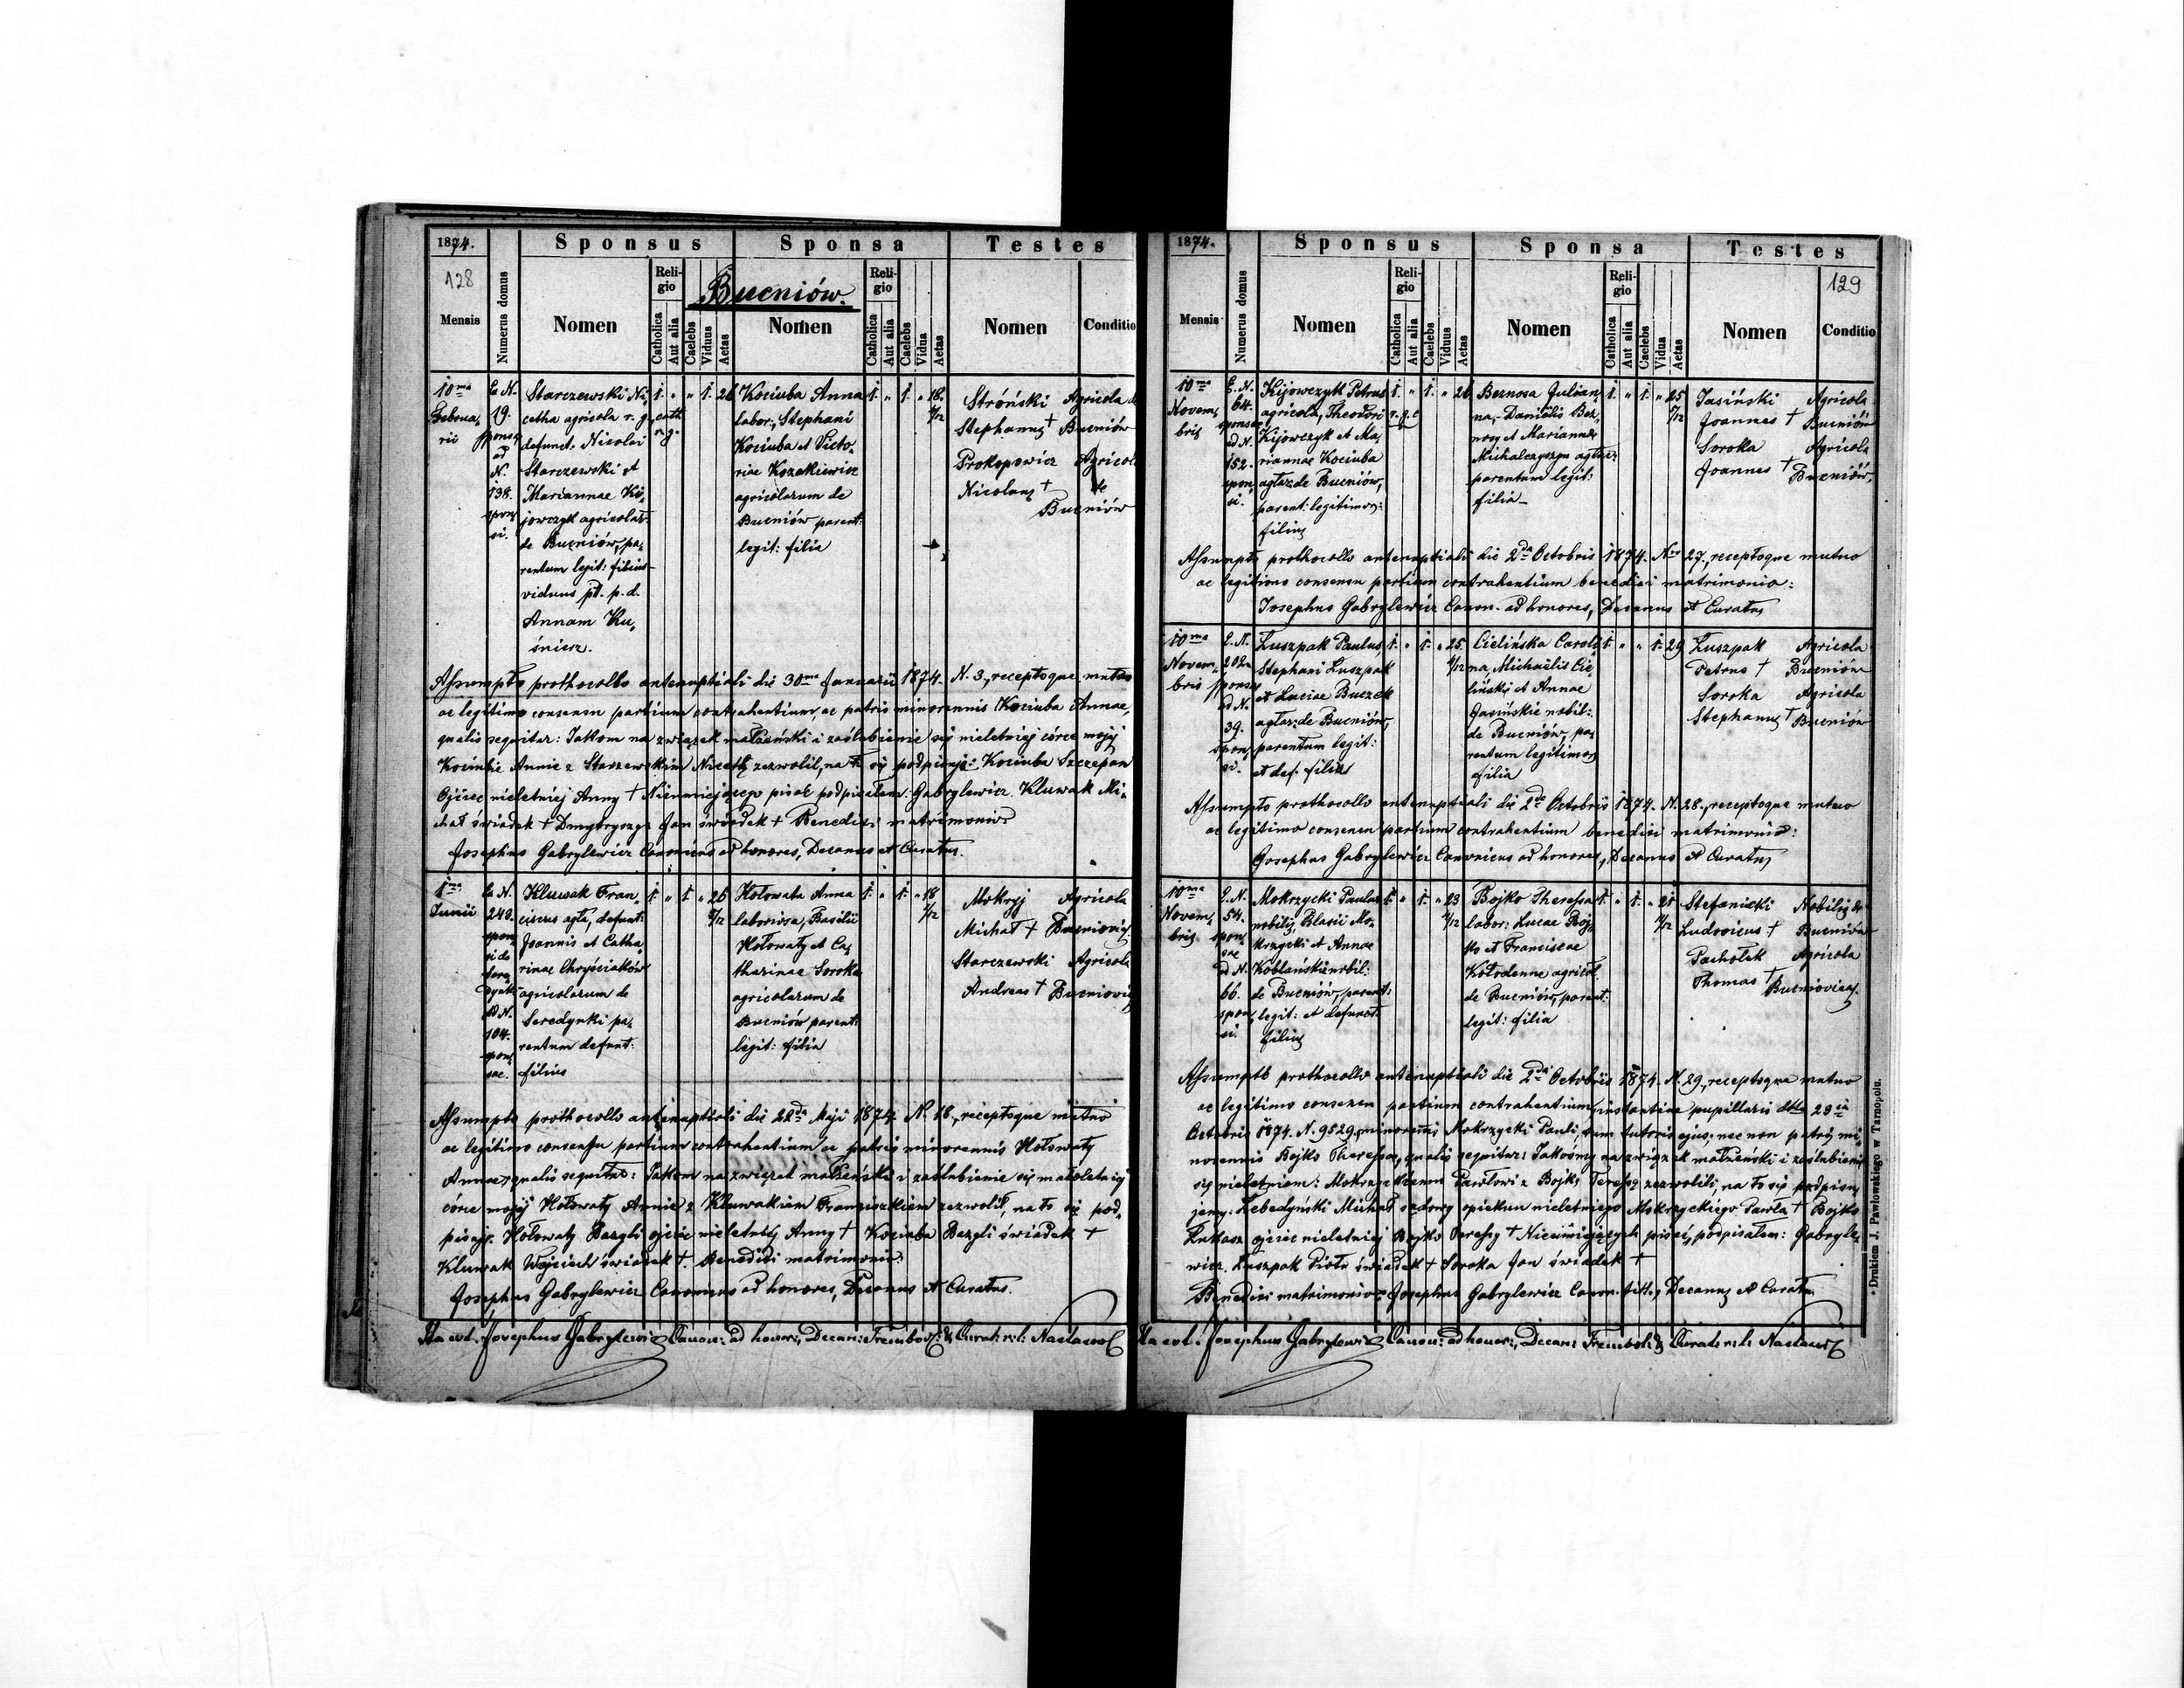 1874.
Sponsus
Sponsa
Testes
128
Mensis
Numerus domus
Nomen
Religio
Catholica
Aut alia
Caelebs
Viduus
Aetas
Bucniów.
Nomen
Religio
Catholica
Aut alia
Caelebs
Vidua
Aetas
Nomen
Conditio
10ma
Februa„
rii
Ex N.
19.
sponsae
ad
N.
138.
spon„
si.
Starczewski Ni„
cetha agricola r. g.
defunct. Nicolai
Starczewski et
Mariannae Ki„
jowczyk agricolar.
de Bucniów, pa„
rentum legit: filius
viduus pt. p. d.
Annam Ku„
śnierz.
1. „ „ 1. 26
cath.
r. g.
Kociuba Anna
labor:, Stephani
Kociuba et Victo„
riae Kozakiewicz
agricolarum de
Bucniów parent:
legit: filia
1. „ 1. „ 18.
Stróński Agricola de
Stephanus † Bucniów
Prokopowicz Agricola
Nicolaus † de
Bucniów
Assumpto prothocollo antenuptiali die 30ma Januarii 1874. N. 3., receptoque mutuo
ac legitimo consensu partium contrahentium, ac patris minorennis Kociuba Annae,
qualis sequitur: Jakom na związek małżeński i zaślubienie się nieletniej córce mojej
Kociubie Annie z Starzewskim Nicetą zezwolił, na to się podpisuję: Kociuba Szczepan
Ojciec nieletniej Anny † Nieumiejącego pisać podpisałem: Gabrylewicz. Kluwak Mi„
chał świadek † Dmytryszyn Jan świadek † Benedixi matrimonio
Josephus Gabrylewicz Canonicus ad honores, Decanus et Curatus.
1ma
Junii
Ex N.
249.
spon„
si de
Sere„
dynki
ad N.
104.
spon„
sae.
Kluwak Fran„
ciscus agla, defunct:
Joannis et Catha„
rinae Chryściaków
agricolarum de
Seredynki pa„
rentum defunt:
filius
1. „ 1 „ 26
Hołowata Anna
laboriosa, Basilii
Hołowaty et Ca„
tharinae Soroka
agricolarum de
Bucniów parent:
legit: filia
1. „ 1. „ 18
Mokryj Agricola
Michał † Bucnioviens.
Starczewski Agricola
Andreas † Bucnioviens
Assumpto prothocollo antenuptiali die 22da Maji 1874. N. 18., receptoque mutuo
ac legitimo consensu partium contrahentium ac patris minorennis Hołowaty
Annae, qualis sequitur: Jakom na związek małżeński i zaślubienie się małoletniej
córce mojej Hołowaty Annie z Kluwakiem Franciszkiem zezwolił, na to się pod„
pisuję. Hołowaty Bazyli ojciec nieletniej Anny † Kociuba Bazyli świadek †
Kluwak Wojciech świadek †. Benedixi matrimonio:
Josephus Gabrylewicz Canonicus ad honores, Decanus et Curatus.
Ita est. Josephus Gabrylewicz Canon: ad honor:, Decan: Trembowl: & Curat: r: l: Nastasow
1874.
Sponsus
Sponsa
Testes
129
Mensis
Numerus domus
Nomen
Religio
Catholica
Aut alia
Caelebs
Viduus
Aetas
Nomen
Religio
Catholica
Aut alia
Caelebs
Vidua
Aetas
Nomen
Conditio
10ma
Novem„
bris
E. N.
64.
sponsae
ad N.
152.
spon„
si.
Kijowczyk Petrus
agricola, Theodori
Kijowczyk et Ma„
riannae Kociuba
aglar: de Bucniów,
parent: legitimor:
filius
1. „ 1. „ 26
r. g. c
Bernosa Julian„
na, Danielis Ber„
nosy et Mariannae
Michalczyszyn aglar:
parentum legit:
filia
1. „ 1. „ 25
Jasiński Agricola
Joannes † Bucniów
Soroka Agricola
Joannes † Bucniów,
Assumpto prothocollo antenuptiali die 2da Octobris 1874. Nro 27., receptoque mutuo
ac legitimo consensu partium contrahentium benedixi matrimonio:
Josephus Gabrylewicz Canon. ad honores, Decanus et Curatus
10ma
Novem„
bris
E. N.
202a
sponsae
ad N.
39.
spon„
si.
Łuszpak Paulus,
Stephani Łuszpak
et Luciae Buczek
aglar: de Bucniów,
parentum legit:
et def. filius
1. „ 1. „ 25.
Cielińska Caroli„
na, Michaëlis Cie„
liński et Annae
Jasińskie nobil:
de Bucniów, pa„
rentum legitimor
filia
1 „ „ 1. 29
Łuszpak Agricola
Petrus † Bucniów
Soroka Agricola
Stephanus † Bucniów
Assumpto prothocollo antenuptiali die 2da Octobris 1874. N. 28., receptoque mutuo
ac legitimo consensu partium contrahentium benedixi matrimonio:
Josephus Gabrylewicz Canonicus ad honores, Decanus et Curatus
10ma
Novem„
bris
E. N.
54.
spon„
sae
ad N.
66.
spon„
si.
Mokrzycki Paulus
nobilis, Blasii Mo„
krzycki et Annae
Koblański nobil:
de Bucniów, parent:
legit: et defunct.
filius
1. „ 1. „ 23
Bojko Theressa
labor: Lucae Boj„
ko et Franciscae
Kołodenne agricol.
de Bucniów, parent:
legit: filia
1. „ 1. „ 21
Stefanicki Nobilis de
Ludovicus † Bucniów
Pachołek Agricola
Thomas † Bucnioviens.
Assumpto prothocollo antenuptiali die 2da Octobris 1874. N. 29., receptoque mutuo
ac legitimo consensu partium contrahentium, instantiae pupillaris ddto 29
Octobris 1874. N. 9529., minorennis Mokrzycki Pauli, tum tutoris ejus; nec non patris mi„
norennis Bojko Theressa, qualis sequitur: Jakośmy na związek małżeński i zaślubienie
się nieletniem: Mokrzyckiemu Pawłowi z Bojko Teressą zezwolili, na to się podpisu„
jemy. Lebedyński Michał sądowy opiekun nieletniego Mokrzyckiego Pawła † Bojko
Łukasz ojciec nieletniej Bojko Teressy † Nieumiejących pisać, podpisałem: Gabryle„
wicz. Łuszpak Piotr świadek † Soroka Jan świadek †
Benedixi matrimonio: Josephus Gabrylewicz Canon. tit., Decanus et Curatus
Ita est. Josephus Gabrylewicz Canon: ad honor:, Decan: Trembowl: & Curat: r: l: Nastasow
• Drukiem J. Pawłowskiego w Tarnopolu.